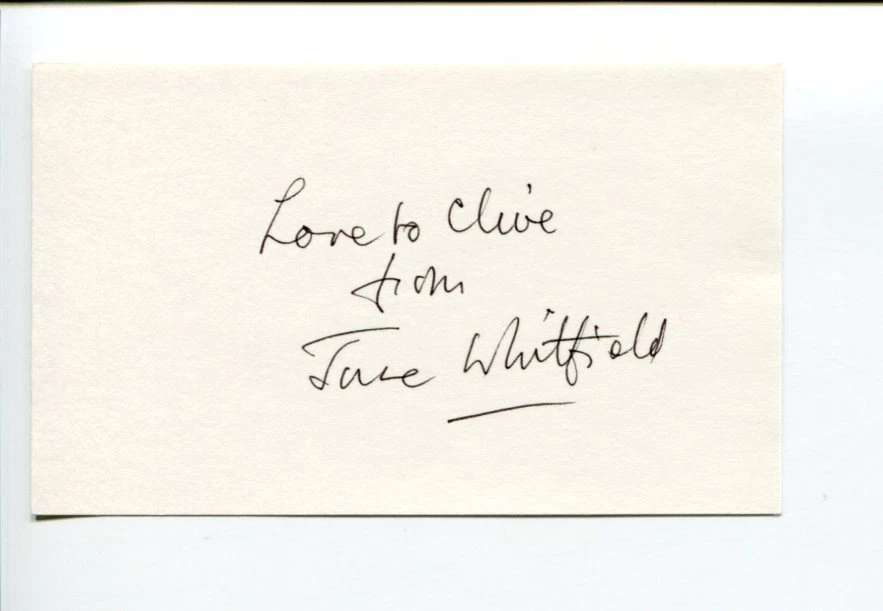 Love to Clive
from
June Whitfield